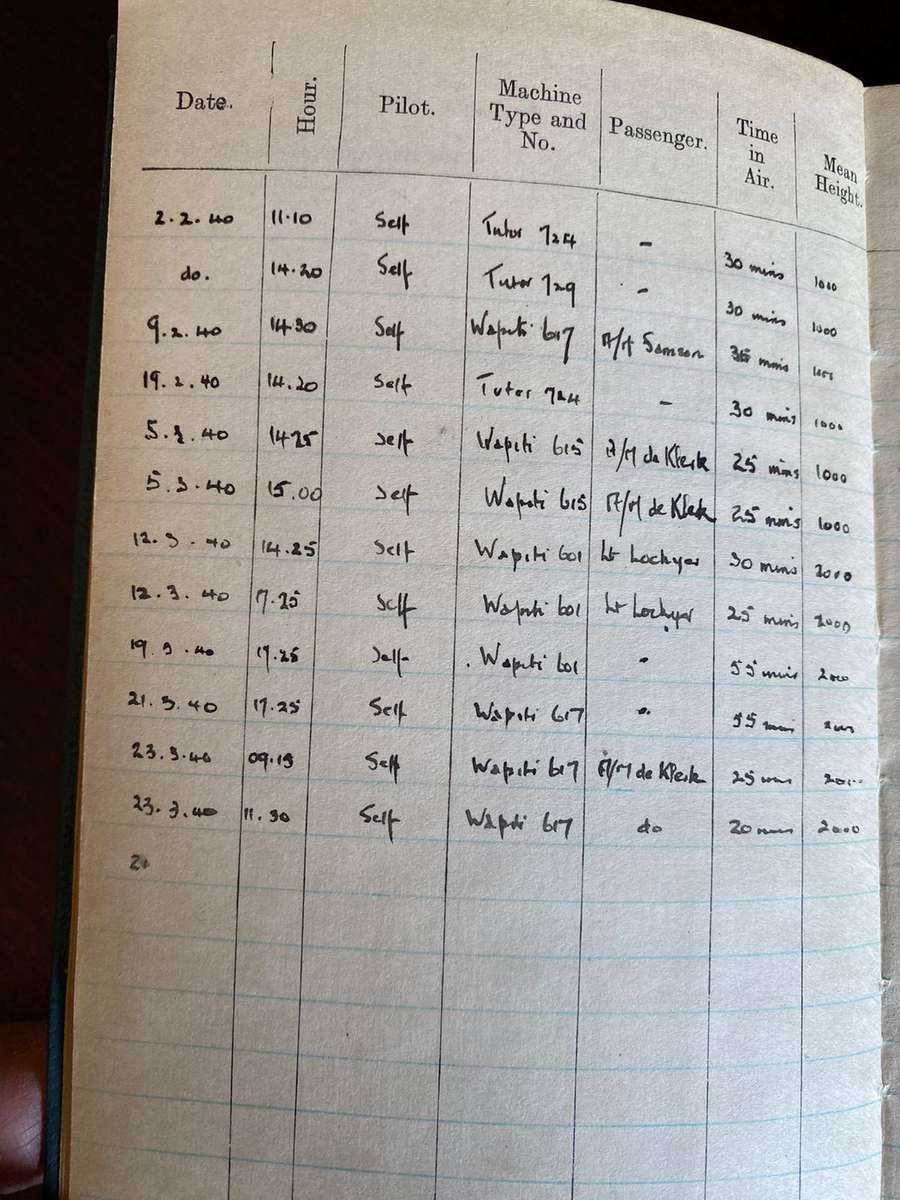 Date. Hour. Pilot. Machine Type and No. Passenger. Time in Air. Mean Height.
2.2.40 11.10 Self Tutor 724 - 30 mins 1000
do. 14.20 Self Tutor 729 - 30 mins 1000
9.2.40 14.30 Self Wapiti 617 A/M Samson 35 mins
19.2.40 14.20 Self Tutor 724 - 30 mins 1000
5.3.40 1425 Self Wapiti 615 A/M de Klerk 25 mins 1000
5.3.40 15.00 Self Wapiti 615 A/M de Klerk 25 mins 1000
12.3.40 14.25 Self Wapiti 601 Lt Lockyer 30 mins 2000
12.3.40 7.25 Self Wapiti 601 Lt Lockyer 25 mins 2000
19.3.40 17.25 Self Wapiti 601 - 55 mins 2000
21.3.40 17.25 Self Wapiti 617 - 55 mins 2000
23.3.40 09.15 Self Wapiti 617 A/M de Klerk 25 mins 2000
23.3.40 11.30 Self Wapiti 617 do 20 mins 2000